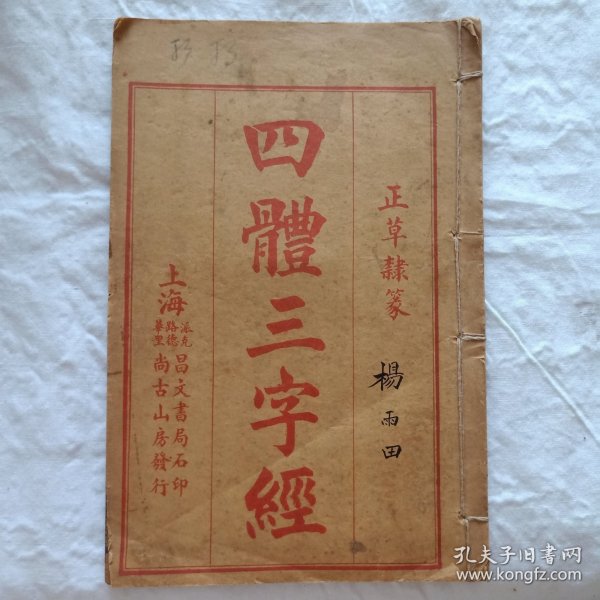 正草隸篆
楊雨田
四體三字經
上海
派克路德華里
昌文書局石印
尚古山房發行
孔夫子旧书网
www.kongfz.com